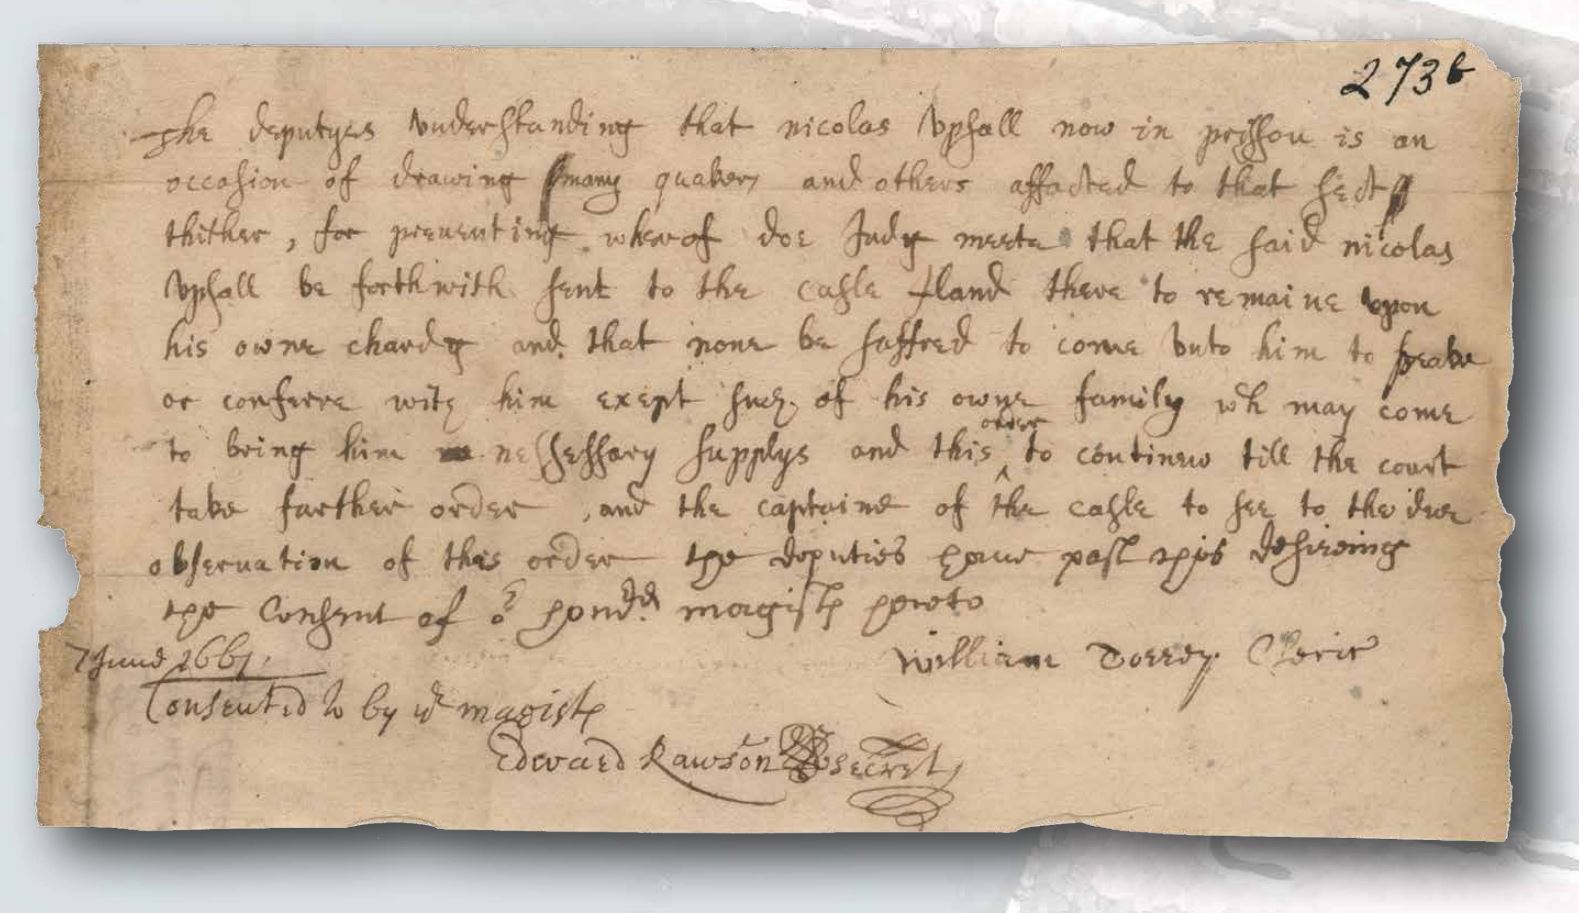 273b
The deputyes vnderstanding that nicolas vpsall now in prisson is an
occasion of drawing many quakers and others affacted to that sect
thither, for preuenting wherof doe Judg meete that the said nicolas
vpsall be forthwith sent to the casle Iland there to remaine vpon
his owne chardg and that none be suffred to come vnto him to speake
or conferre with him exept such of his owne family wh may come
to bring him nessessary supplys and this order to continew till the court
take farther order, and the captaine of the casle to see to the due
obseruation of this order the deputies haue past this desireing
the Consent of or honord magists hereto
William Torrey Cleric
7 June 1661.
Consentd to by ye magists
Edward Rawson secret